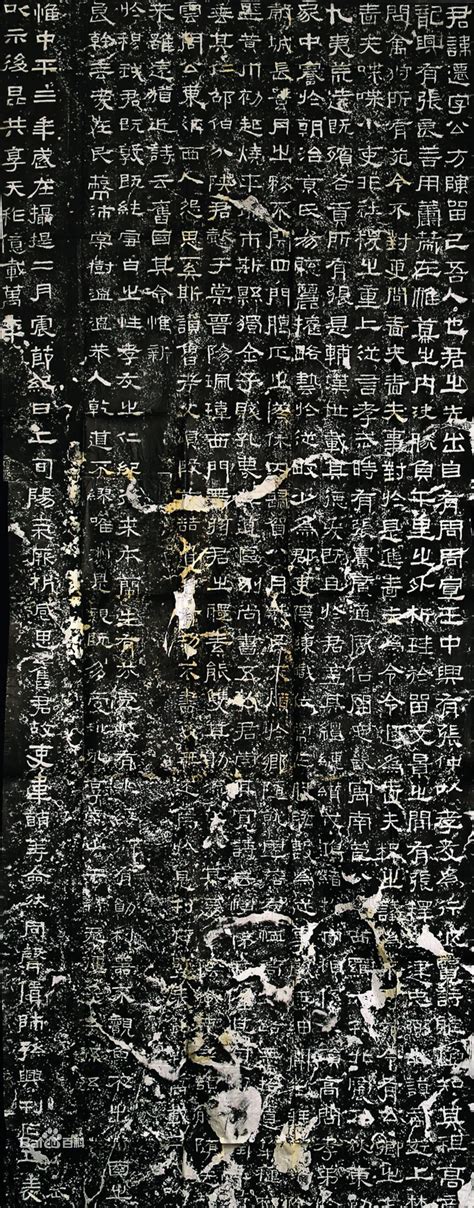 君諱遷字公方陳留己吾人也君之先出自有周周宣王中興有張仲以孝友爲行披覽詩雅煥知其祖高帝
龍興有張良善用籌策在帷幕之內決勝負千里之外析珪於留文景之間有張釋之建忠弼之謨帝遊上林
問禽狩所有苑令不對更問嗇夫嗇夫事對於是進嗇夫爲令令退爲嗇夫釋之議爲不可苑令有公卿之才
嗇夫喋喋小吏非社稷之重上從言孝武時有張騫廣通風俗開定畿寓南苞八蠻西羈六戎北震五狄東勤
九夷荒遠既殯各貢所有張是輔漢世載其德爰既且於君蓋其繵縺纘戎鴻緒牧守相系不殞高問孝弟於
家中謇於朝治京氏易聰麗權略藝於從畋少爲郡吏隱練職位常在股肱數爲從事聲無細聞徵拜郎中除
穀城長蠶月之務不閉四門臘正之僚休囚歸賀八月筭民不煩於鄉隨就虛落存恤高年路無拾遺犁種宿
野黃巾初起燒平城市斯縣獨全子賤孔蔑其道區別尚書五教君崇其寬詩云愷悌君隆其恩東里潤色君
垂其仁邵伯分陝君懿于棠晉陽珮瑋西門帶弦君之體素能雙其勛流化八基遷蕩陰令吏民頡頏隨送如
雲周公東征西人怨思奚斯讚魯考父頌殷前喆遺芳有功不書後無述焉於是刊石豎表銘勒萬載三代以
來雖遠猶近詩云舊國其命惟新
於穆我君既敦既純雪白之性孝友之仁紀行求本蘭生有芬克岐有兆綏御有勛利器不覿魚不出淵國之
良幹垂愛在民蔽沛棠樹溫溫恭人乾道不繆唯淑是親既多受祉永享南山干祿無疆子子孫孫
惟中平三年歲在攝提二月震節紀日上旬陽氣厥析感思舊君故吏韋萌等僉然同聲賃師孫興刊石立表
以示後昆共享天祚億載萬年
Baidu百科